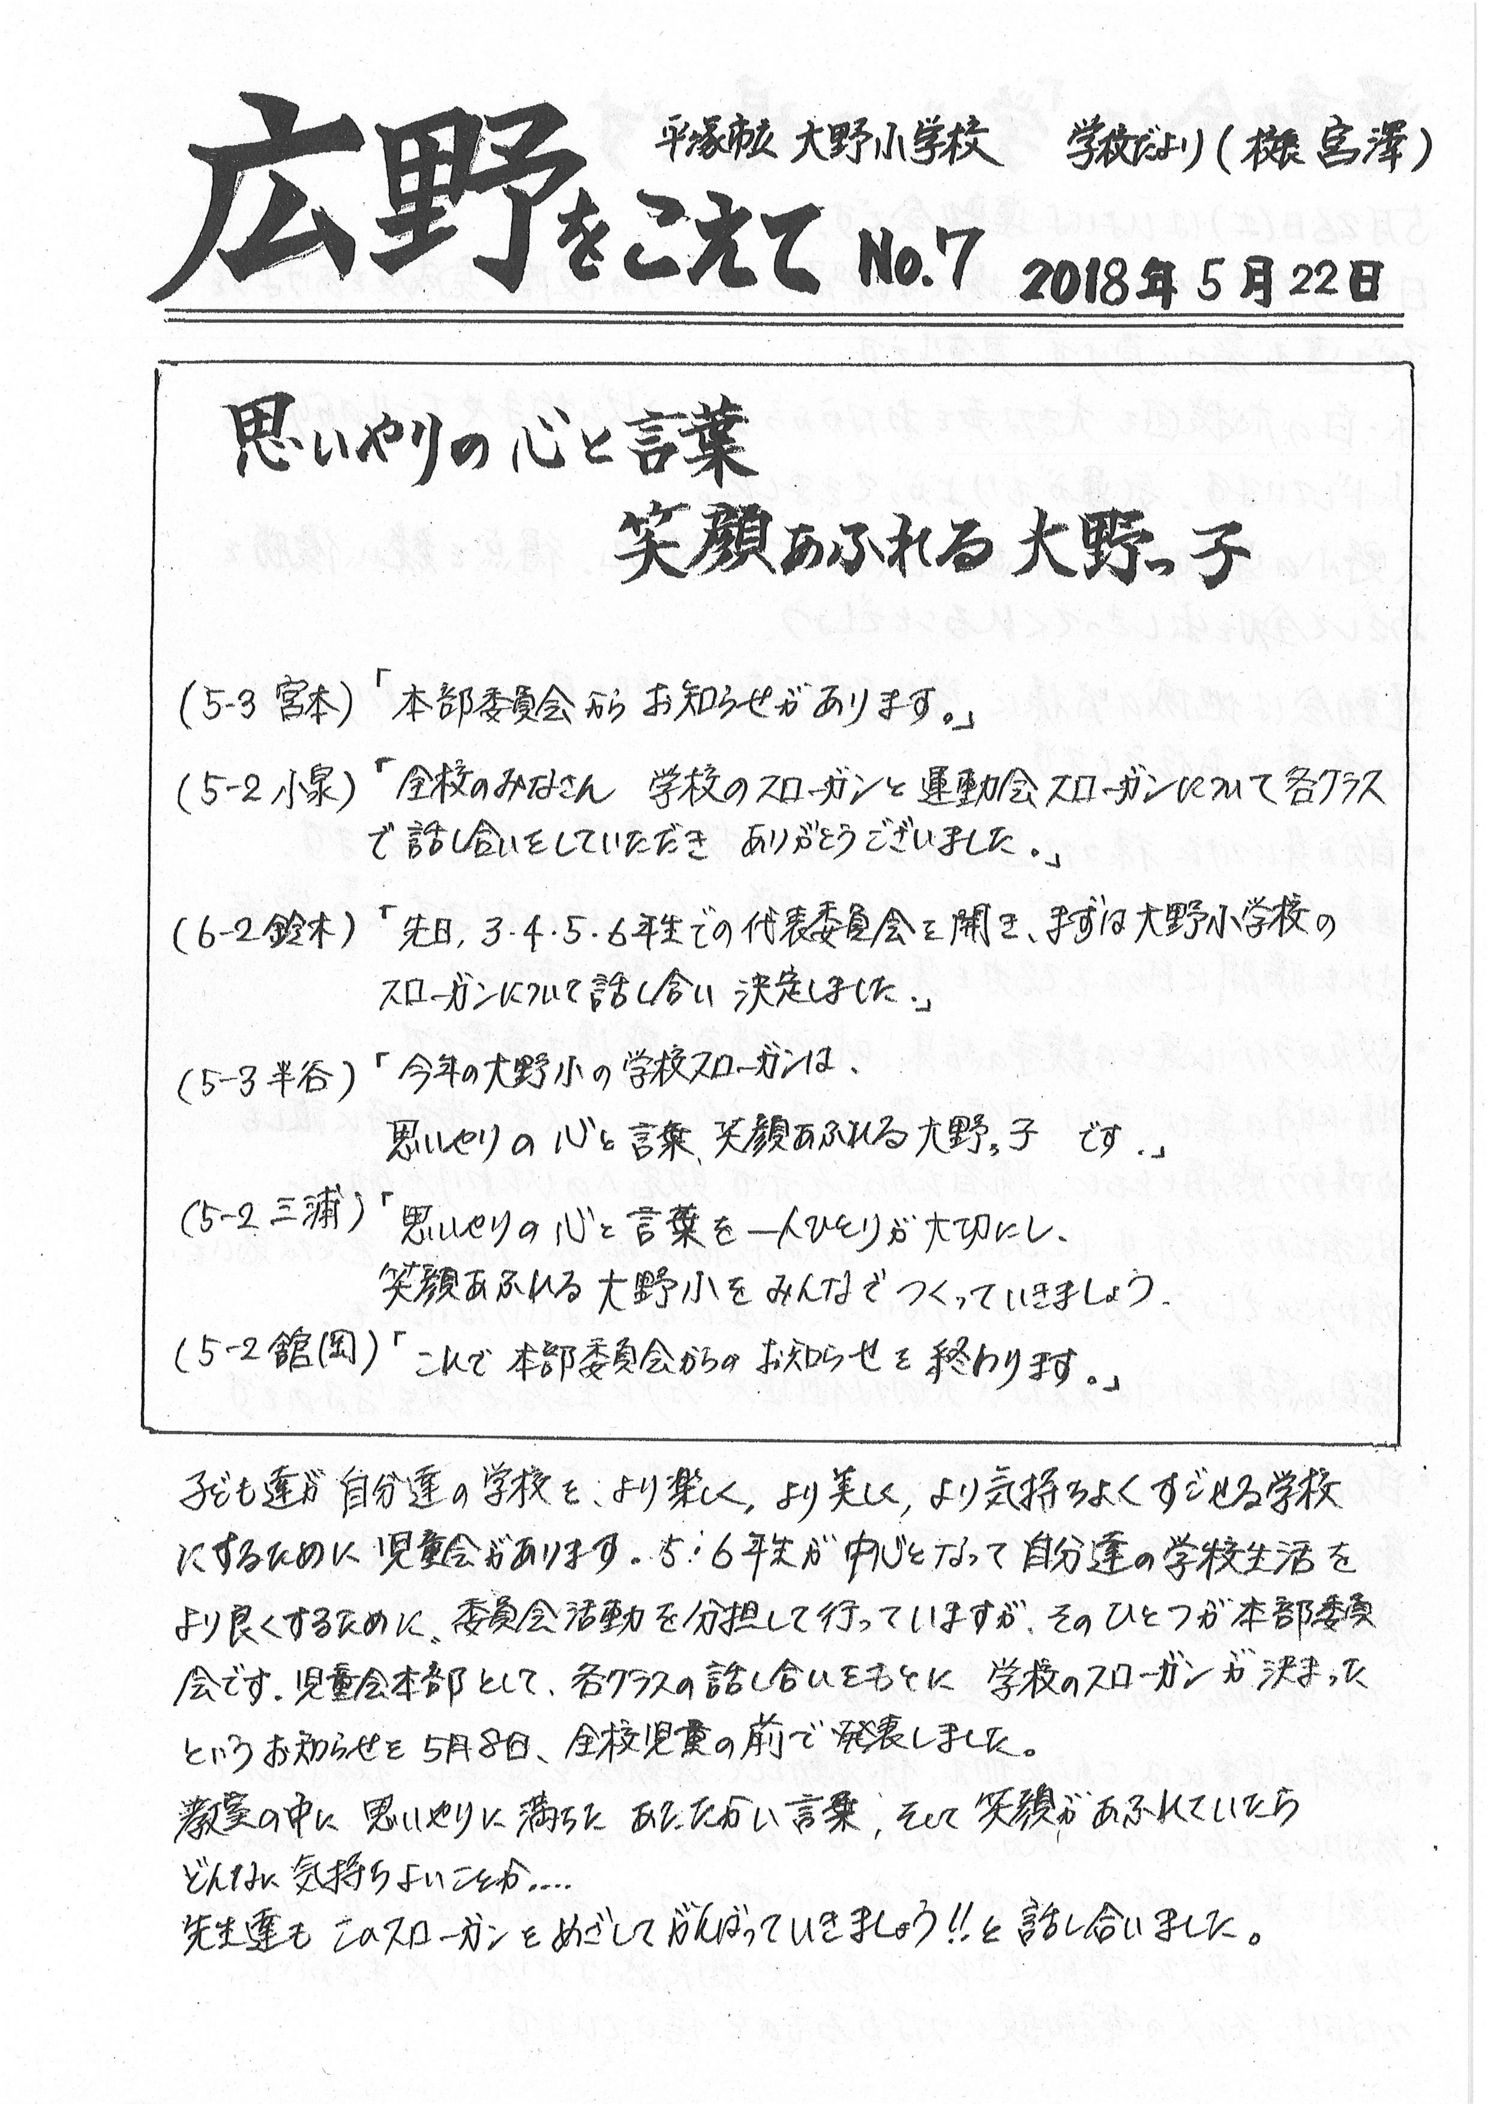 平塚市立 大野小学校 学校だより(校長 宮澤)
広野をこえて No.7 2018年5月22日
思いやりの心と言葉
笑顔あふれる大野っ子
(5-3 宮本)「本部委員会から お知らせがあります。」
(5-2 小泉)「全校のみなさん 学校のスローガンと運動会スローガンについて各クラス
で話し合いをしていただき ありがとうございました。」
(6-2 鈴木)「先日, 3・4・5・6年生での代表委員会を開き、まずは大野小学校の
スローガンについて話し合い 決定しました.」
(5-3 半谷)「今年の大野小の学校スローガンは、
思いやりの心と言葉、笑顔あふれる大野っ子 です.」
(5-2 三浦)「思いやりの心と言葉を一人ひとりが大切にし、
笑顔あふれる大野小をみんなでつくっていきましょう.
(5-2 舘岡)「これで本部委員会からのお知らせを終わります。」
子ども達が自分達の学校を、より楽しく, より美しく, より気持ちよくすごせる学校
にするために児童会があります。5・6年生が中心となって自分達の学校生活を
より良くするために、委員会活動を分担して行っていますが、そのひとつが本部委員
会です.児童会本部として、各クラスの話し合いをもとに 学校のスローガンが決まった
というお知らせを5月8日、全校児童の前で発表しました。
教室の中に 思いやりに満ちた あたたかい言葉, そして笑顔があふれていたら
どんなに気持ちよいことか....
先生達も このスローガンをめざしてがんばっていきましょう!!と話し合いました。